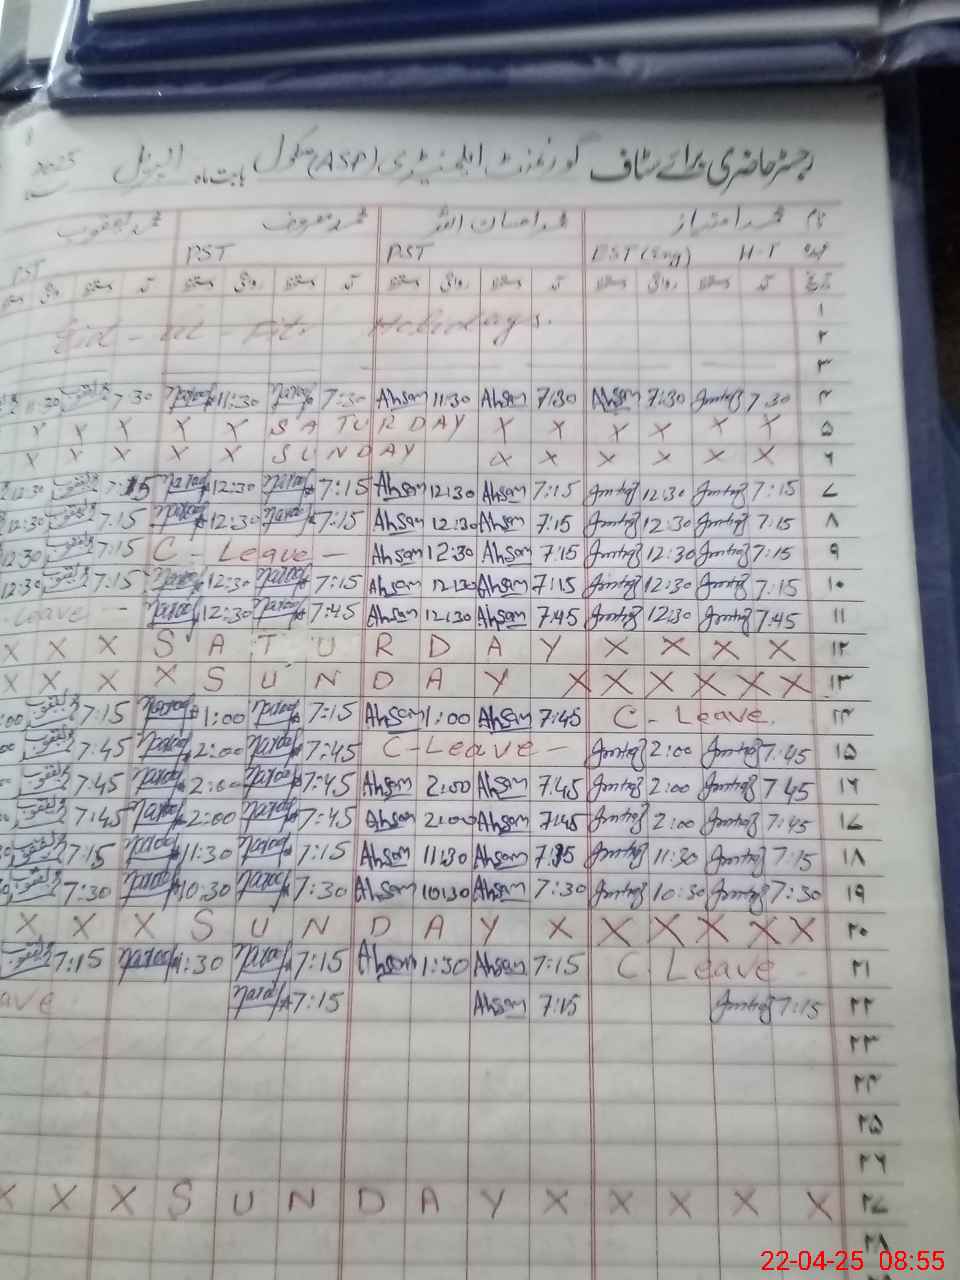 رجسٹر حاضری برائے سٹاف گورنمنٹ ایلیمنٹری (ASP) سکول بابت ماہ اپریل 2025
نام محمد امتیاز محمد احسان اللہ محمد معروف محمد یعقوب
عہدہ H.T EST (Eng) PST PST PST
تاریخ
۱
۲ Eid - ul - Fitr Holidays.
۳
۴ 7:30 Imtiaz 7:30 Ahsan 7:30 Ahsan 11:30 Ahsan 7:30 Maroof 11:30 Maroof 7:30 یعقوب 11:30
۵ X X X SATURDAY X X X X X X
۶ X X X X X SUNDAY X X X X X X
۷ 7:15 Imtiaz 12:30 Imtiaz 7:15 Ahsan 12:30 Ahsan 7:15 Maroof 12:30 Maroof 7:15 یعقوب 12:30
۸ 7:15 Imtiaz 12:30 Imtiaz 7:15 Ahsan 12:30 Ahsan 7:15 Maroof 12:30 Maroof 7:15 یعقوب 12:30
۹ 7:15 Imtiaz 12:30 Imtiaz 7:15 Ahsan 12:30 Ahsan C - Leave - 7:15 یعقوب 12:30
۱۰ 7:15 Imtiaz 12:30 Imtiaz 7:15 Ahsan 12:30 Ahsan 7:15 Maroof 12:30 Maroof 7:15 یعقوب 12:30
۱۱ 7:45 Imtiaz 12:30 Imtiaz 7:45 Ahsan 12:30 Ahsan 7:45 Maroof 12:30 Maroof Leave -
۱۲ X X X SATURDAY X X X X
۱۳ X X X X SUNDAY X X X X X X
۱۴ C - Leave. 7:45 Ahsan 1:00 Ahsan 7:15 Maroof 1:00 Maroof 7:15 یعقوب :00
۱۵ 7:45 Imtiaz 2:00 Imtiaz C - Leave - 7:45 Maroof 2:00 Maroof 7:45 یعقوب
۱۶ 7:45 Imtiaz 2:00 Imtiaz 7:45 Ahsan 2:00 Ahsan 7:45 Maroof 2:00 Maroof 7:45 یعقوب
۱۷ 7:45 Imtiaz 2:00 Imtiaz 7:45 Ahsan 2:00 Ahsan 7:45 Maroof 2:00 Maroof 7:45 یعقوب
۱۸ 7:15 Imtiaz 11:30 Imtiaz 7:15 Ahsan 11:30 Ahsan 7:15 Maroof 11:30 Maroof 7:15 یعقوب
۱۹ 7:30 Imtiaz 10:30 Imtiaz 7:30 Ahsan 10:30 Ahsan 7:30 Maroof 10:30 Maroof 7:30 یعقوب
۲۰ X X X SUNDAY X X X X X X
۲۱ C. Leave 7:15 Ahsan 1:30 Ahsan 7:15 Maroof 1:30 Maroof 7:15 یعقوب
۲۲ 7:15 Imtiaz 7:15 Ahsan 7:15 Maroof ave
۲۳
۲۴
۲۵
۲۶
۲۷ X X X SUNDAY X X X X X
۲۸
22-04-25 08:55